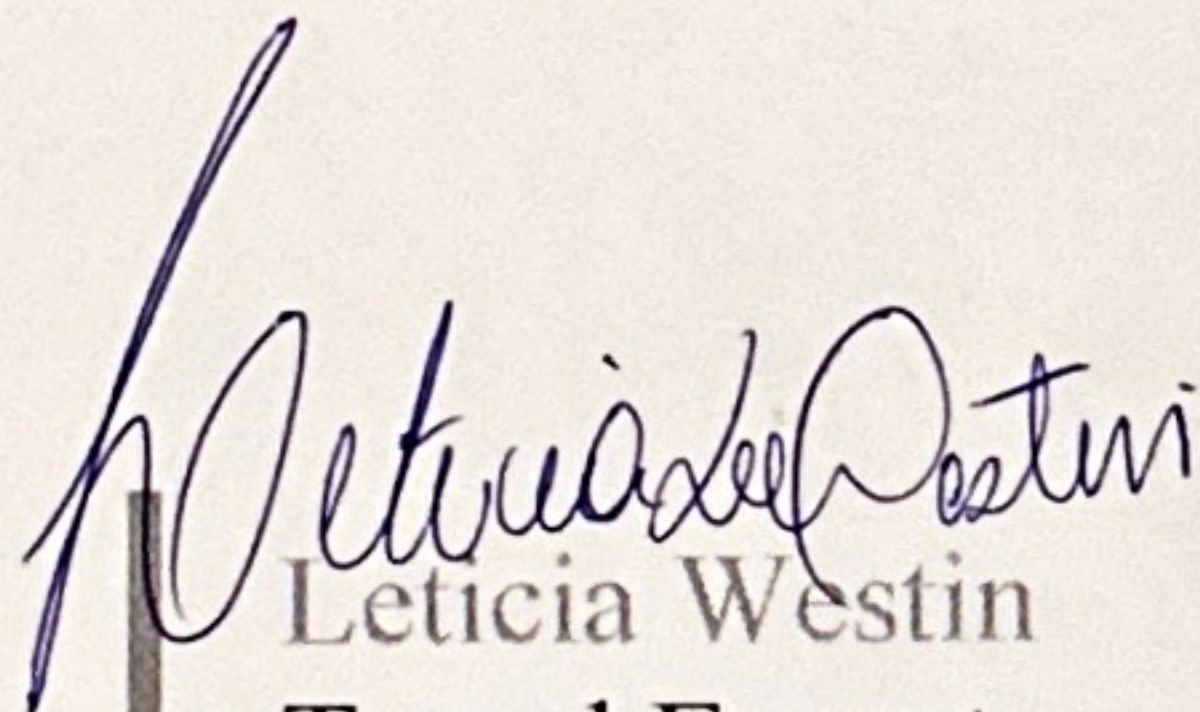 Leticia Lee Westin
Leticia Westin